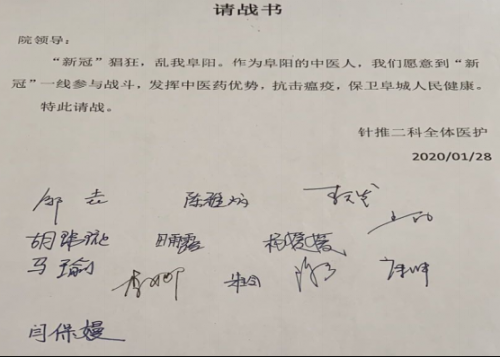 请战书
院领导：
“新冠”猖狂，乱我阜阳。作为阜阳的中医人，我们愿意到“新
冠”一线参与战斗，发挥中医药优势，抗击瘟疫，保卫阜城人民健康。
特此请战。
针推二科全体医护
2020/01/28
陈雅
田雨露 杨媛媛
马瑜
闫保嫚